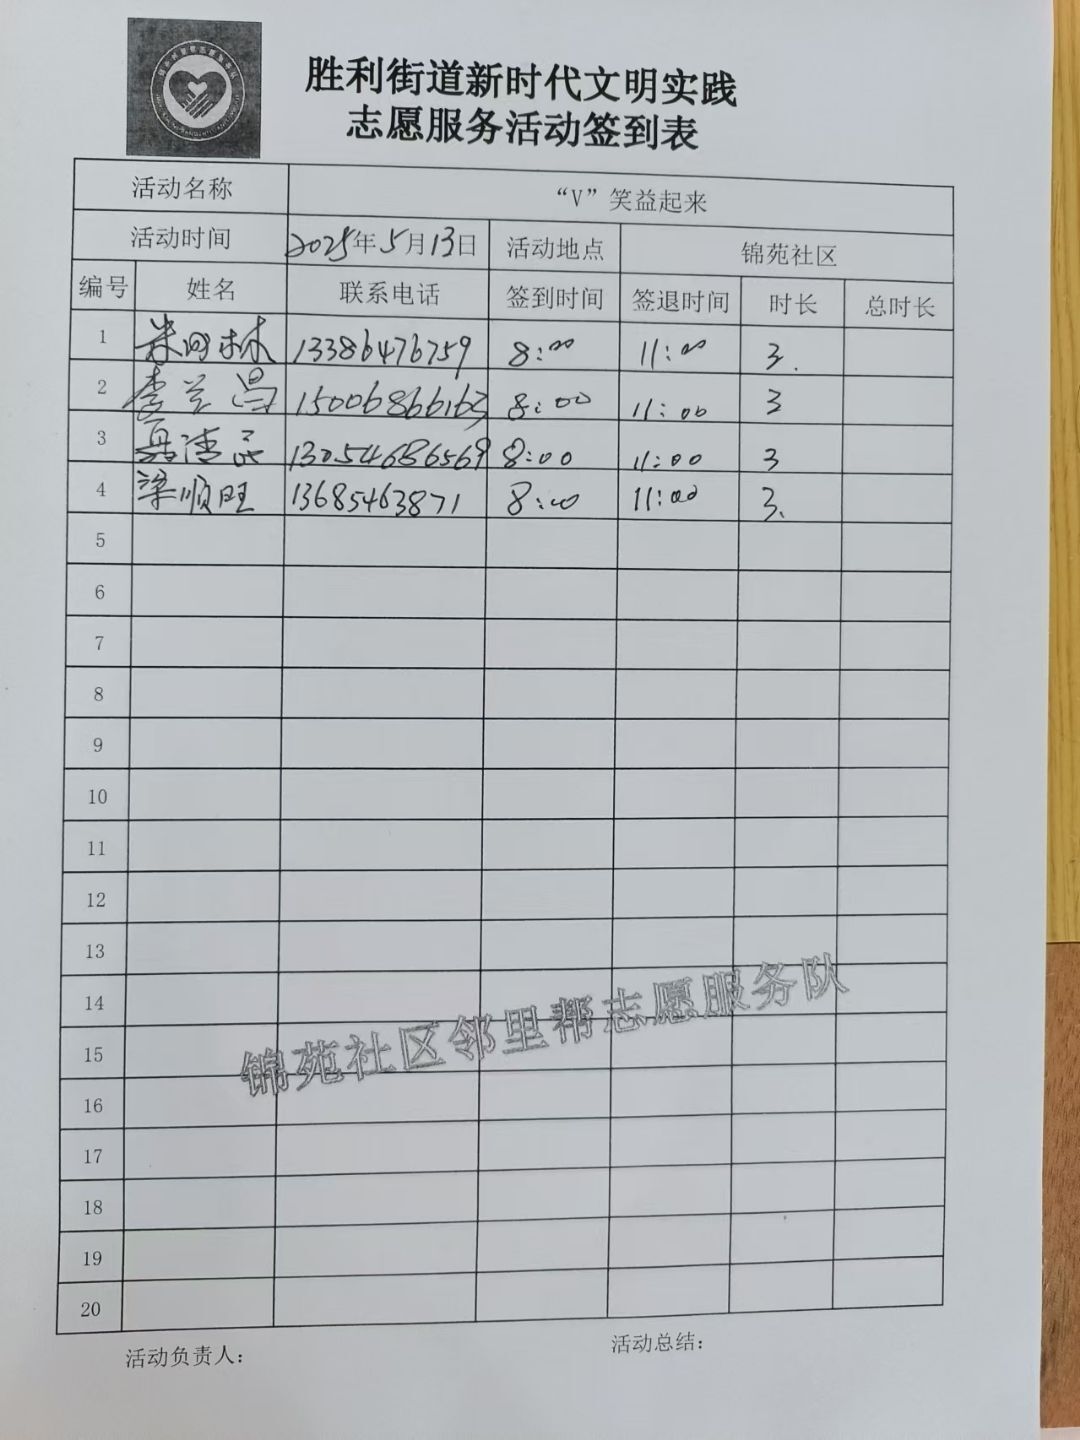 胜利街道新时代文明实践
志愿服务活动签到表
活动名称 “V”笑益起来
活动时间 2025年5月13日 活动地点 锦苑社区
编号 姓名 联系电话 签到时间 签退时间 时长 总时长
1 林 13386476759 8:00 11:00 3.
2 李兰昌 15006866163 8:00 11:00 3
3 13054686569 8:00 11:00 3
4 梁顺旺 13685463871 8:00 11:00 3.
5
6
7
8
9
10
11
12
13
14
15
16
17
18
19
20
锦苑社区邻里帮志愿服务队
活动负责人: 活动总结: